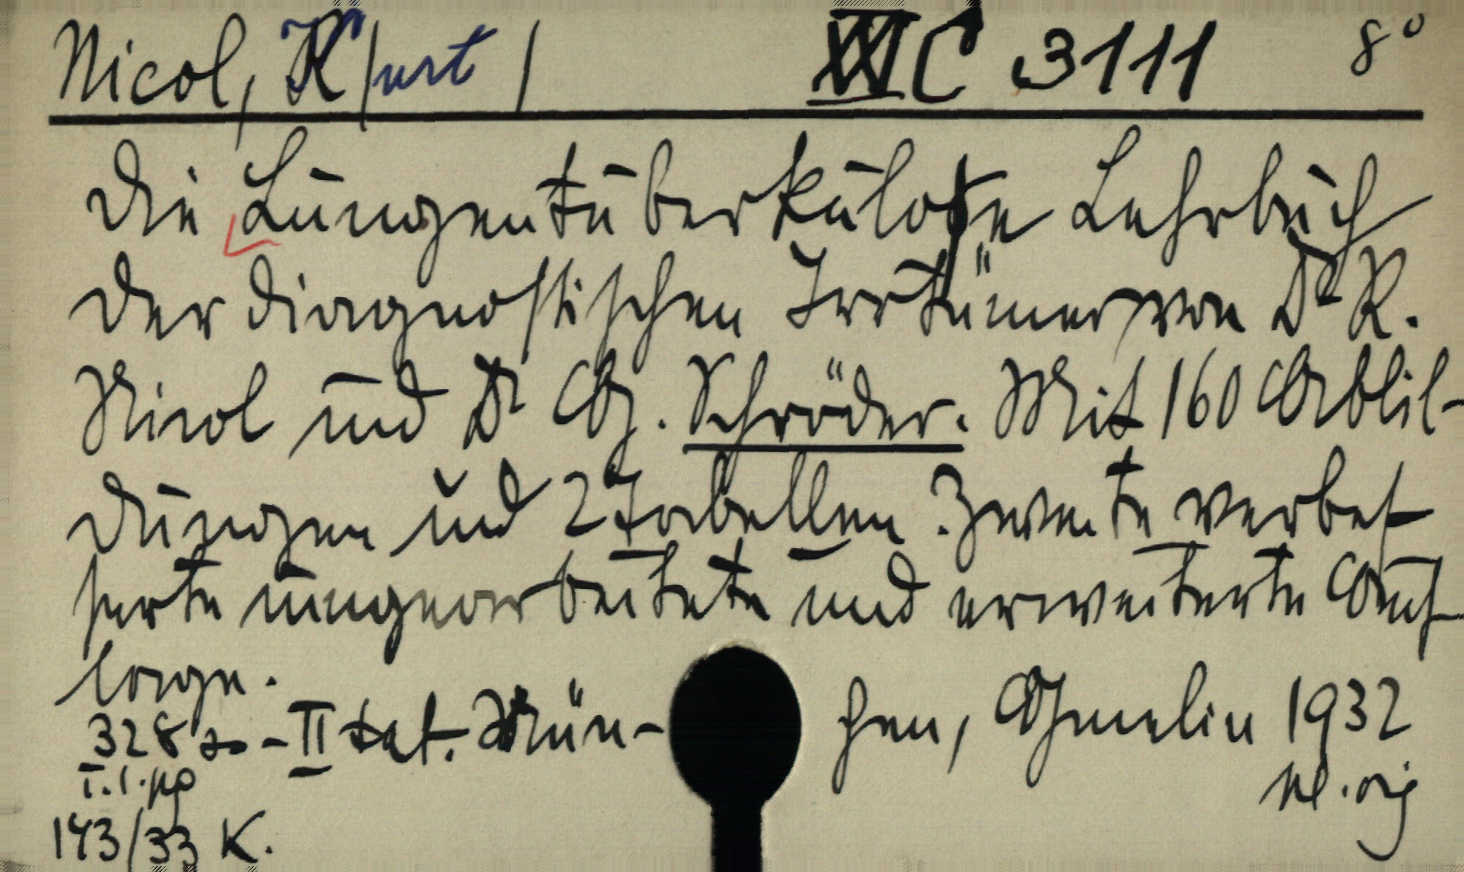 Nicol, K/urt/ XXI C 3111 8°
Die Lungentuberkulose Lehrbuch
der diagnostischen Irrtümer von Dr K.
Nicol und Dr G. Schröder. Mit 160 Abbil-
dungen und 2 Tabellen. Zweite verbes-
serte umgearbeitete und erweiterte Auf-
lage.
328 so - II tab. Mün- chen, Gmelin 1932
T. 1. pp
143/33 K.